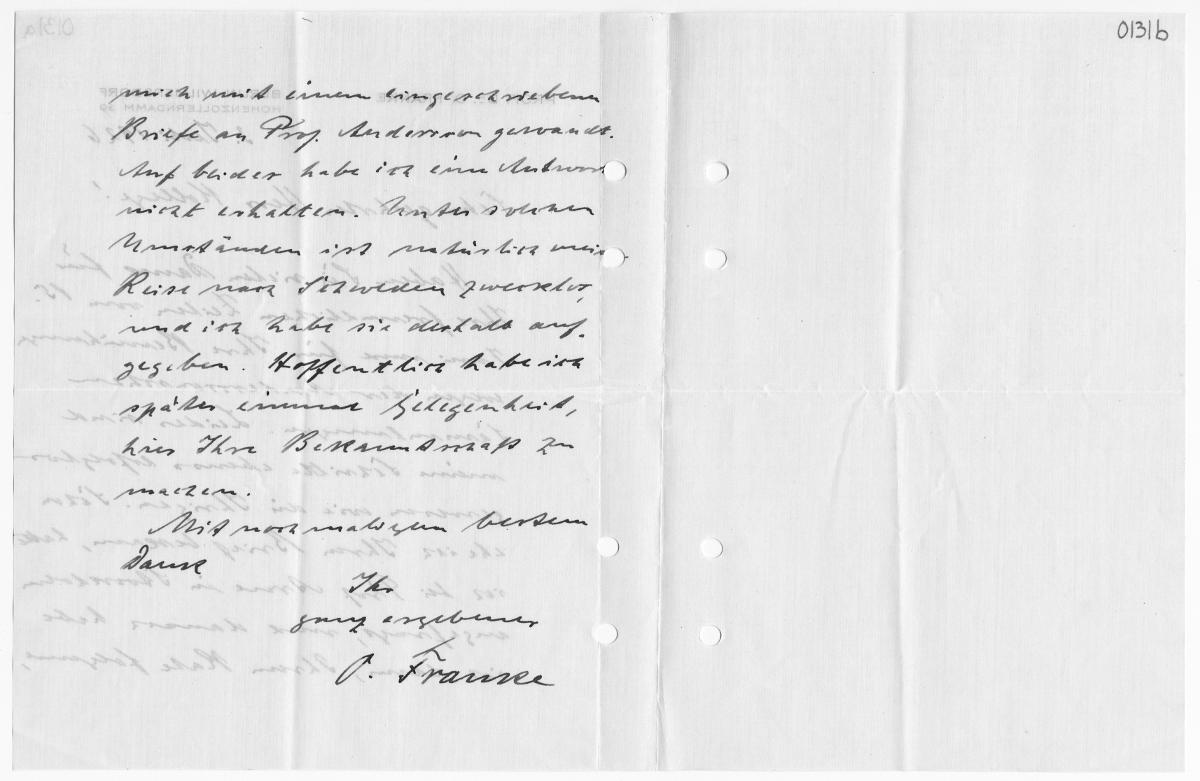 0131b
mich mit einem eingeschriebenen
Briefe an Prof. Andersson gewandt.
Auf beides habe ich eine Antwort
nicht erhalten. Unter solchen
Umständen ist natürlich meine
Reise nach Schweden zwecklos,
und ich habe sie deshalb auf-
gegeben. Hoffentlich habe ich
später einmal Gelegenheit,
hier Ihre Bekanntschaft zu
machen.
Mit nochmaligem bestem
Dank
Ihr
ganz ergebener
O. Franke